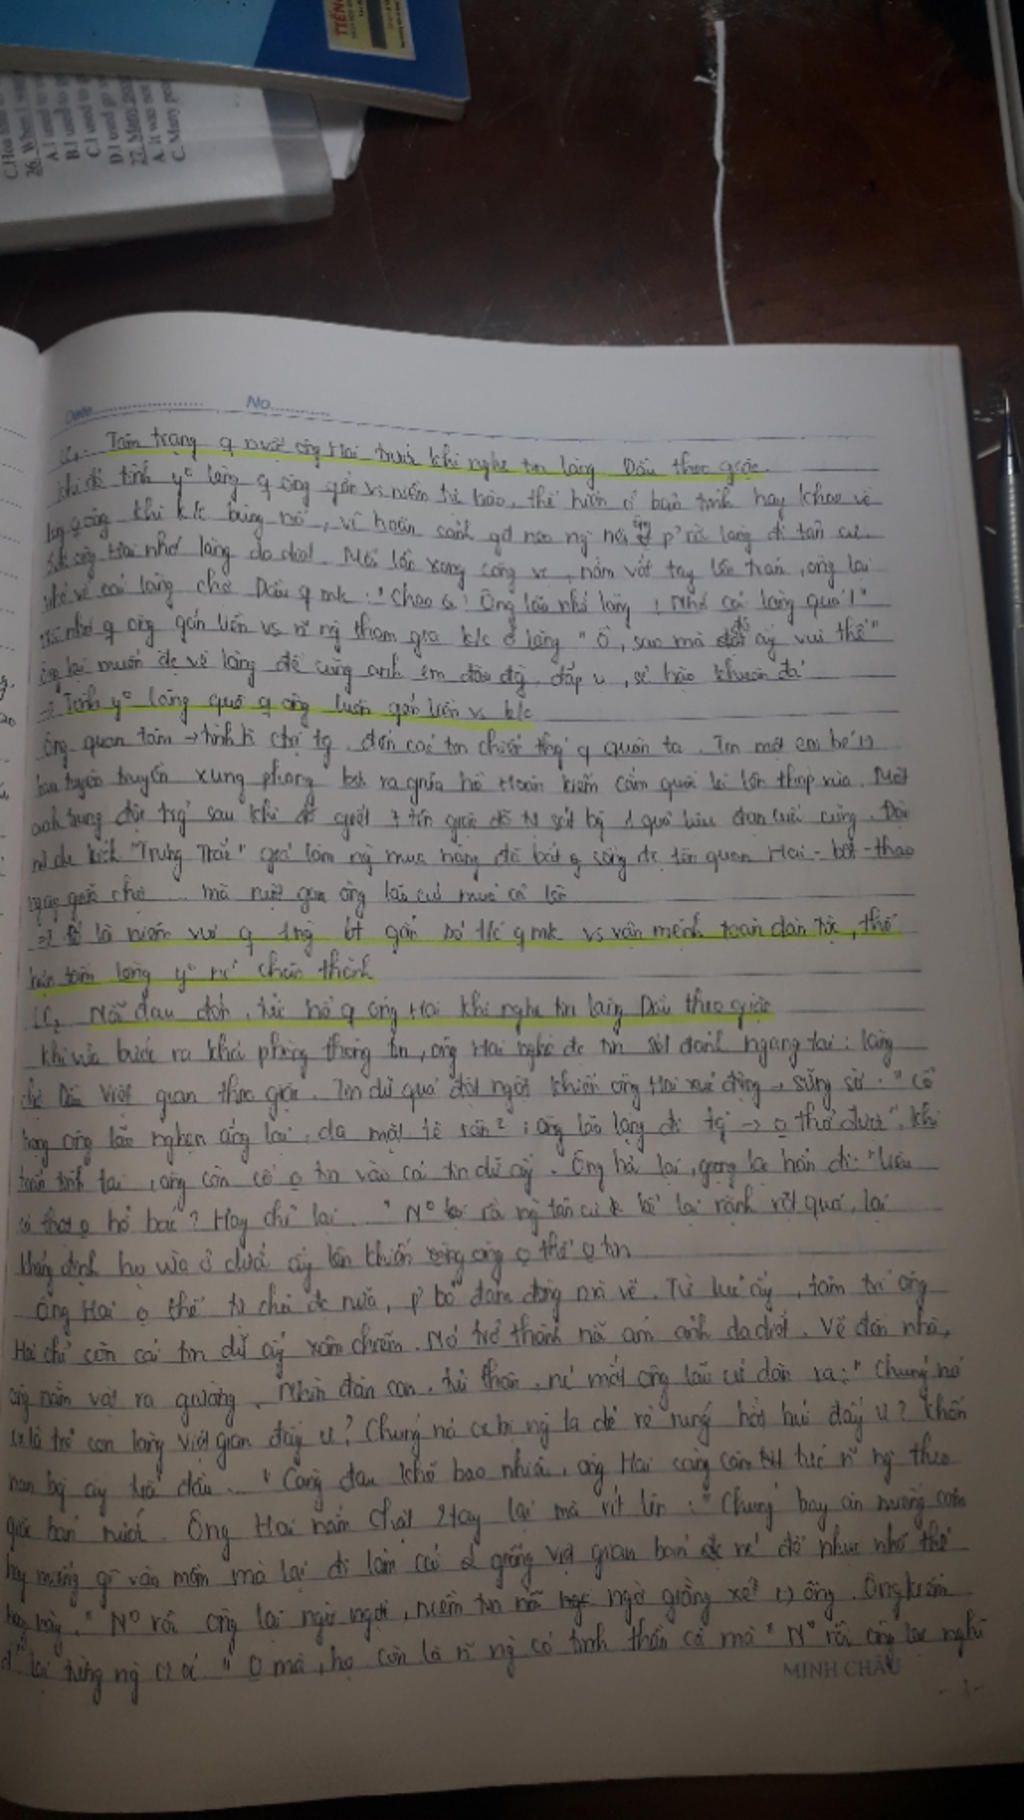 TIẾNG
C.Hoa
26. When I
A.I used to
B.I used to
C.I used to
D.I used
27. Many
A. it was not
C. Many peo
Date No
Tâm trạng q ông Hai trước khi nghe tin làng Dầu theo giặc.
tình y° làng q ông gắn vs niềm tự hào, thể hiện ở bản tính hay khoe về
làng q ông khi k/c bùng nổ, vì hoàn cảnh gđ nên ng p' rời làng đi tản cư.
ông Hai nhớ làng da diết. Mỗi lần xong công vc, nằm vắt tay lên trán, ông lại
về cái làng chợ Dầu q mk: "Chao ôi! Ông lão nhớ làng, nhớ cái làng quá!"
nhớ q ông gắn liền vs ~ ng tham gia k/c ở làng "Ồ, sao mà độ ấy vui thế"
ông lại muốn đc về làng để cùng anh em đào đg, đắp ụ, sẻ hào khuân đá
→ Tình y° làng quê q ông luôn gắn liền vs k/c
Ông quan tâm → tình h chợ tg, đến các tin chiến thg' q quân ta. Tin một em bé
ban tuyên truyền xung phong bơi ra giữa hồ Hoàn Kiếm cắm quốc kì lên tháp rùa. Một
anh trung đội trg' sau khi giết 7 tên giặc đã tự sát bg 1 quả lựu đạn cuối cùng. Đội
nữ du kích "Trưng Trắc" giả làm ng mua hàng để bắt sống đc tên quan Hai - bốt - thao
ngay giữa chợ ... mà ruột gan ông lão cứ múa cả lên
⇒ là niềm vui q 1ng bt gắn bó t/c q mk vs vận mệnh toàn dân tộc, thể
hiện tấm lòng y° nc' chân thành
Nỗi đau đớn, tủi hổ q ông Hai khi nghe tin làng Dầu theo giặc
Khi vừa bước ra khỏi phòng thông tin, ông Hai nghe đc tin sét đánh ngang tai: làng
chợ Dầu Việt gian theo giặc. Tin dữ quá đột ngột khiến ông Hai xúc động → sững sờ. "Cổ
họng ông lão nghẹn ắng lại, da mặt tê rân²; ông lão lặng đi tg → o thở được", khi
trấn tĩnh lại, ông còn cố o tin vào cái tin dữ ấy. Ông hỏi lại, giọng lạc hẳn đi: "Liệu
có thật o hở bác? Hay chỉ lại ..." N° rồi ng tản cư kể lại rành rọt quá, lại
khẳng định họ vừa ở dưới ấy lên khiến ông o thể o tin
Ông Hai o thể tự chủ đc nữa, p' bỏ đám đông mà về. Từ lúc ấy, tâm trí ông
Hai chỉ còn cái tin dữ ấy xâm chiếm. Nó trở thành nỗi ám ảnh da diết. Về đến nhà,
ông nằm vật ra giường. Nhìn đàn con, tủi thân, nc' mắt ông lão cứ dàn ra: "Chúng nó
cx là trẻ con làng Việt gian đấy ư? Chúng nó cx bị ng ta dè rẻ rúng hắt hủi đấy ư? Khốn
nạn bg ấy tuổi đầu..." Càng đau khổ bao nhiêu, ông Hai càng căm tức ~ ng theo
giặc bán nước. Ông Hai nắm chặt 2tay lại mà rít lên: "Chúng bay ăn miếng cơm
hay miếng gì vào mồm mà lại đi làm cái giống việt gian bán nc' để nhục nhã thế
này." N° rồi ông lại ngờ ngợi, niềm tin ngờ giằng xé ông. Ông kiểm
lại từng ng "O mà, họ còn là ~ ng có tinh thần cả mà" N° rồi ông lại nghĩ
MINH CHÂU